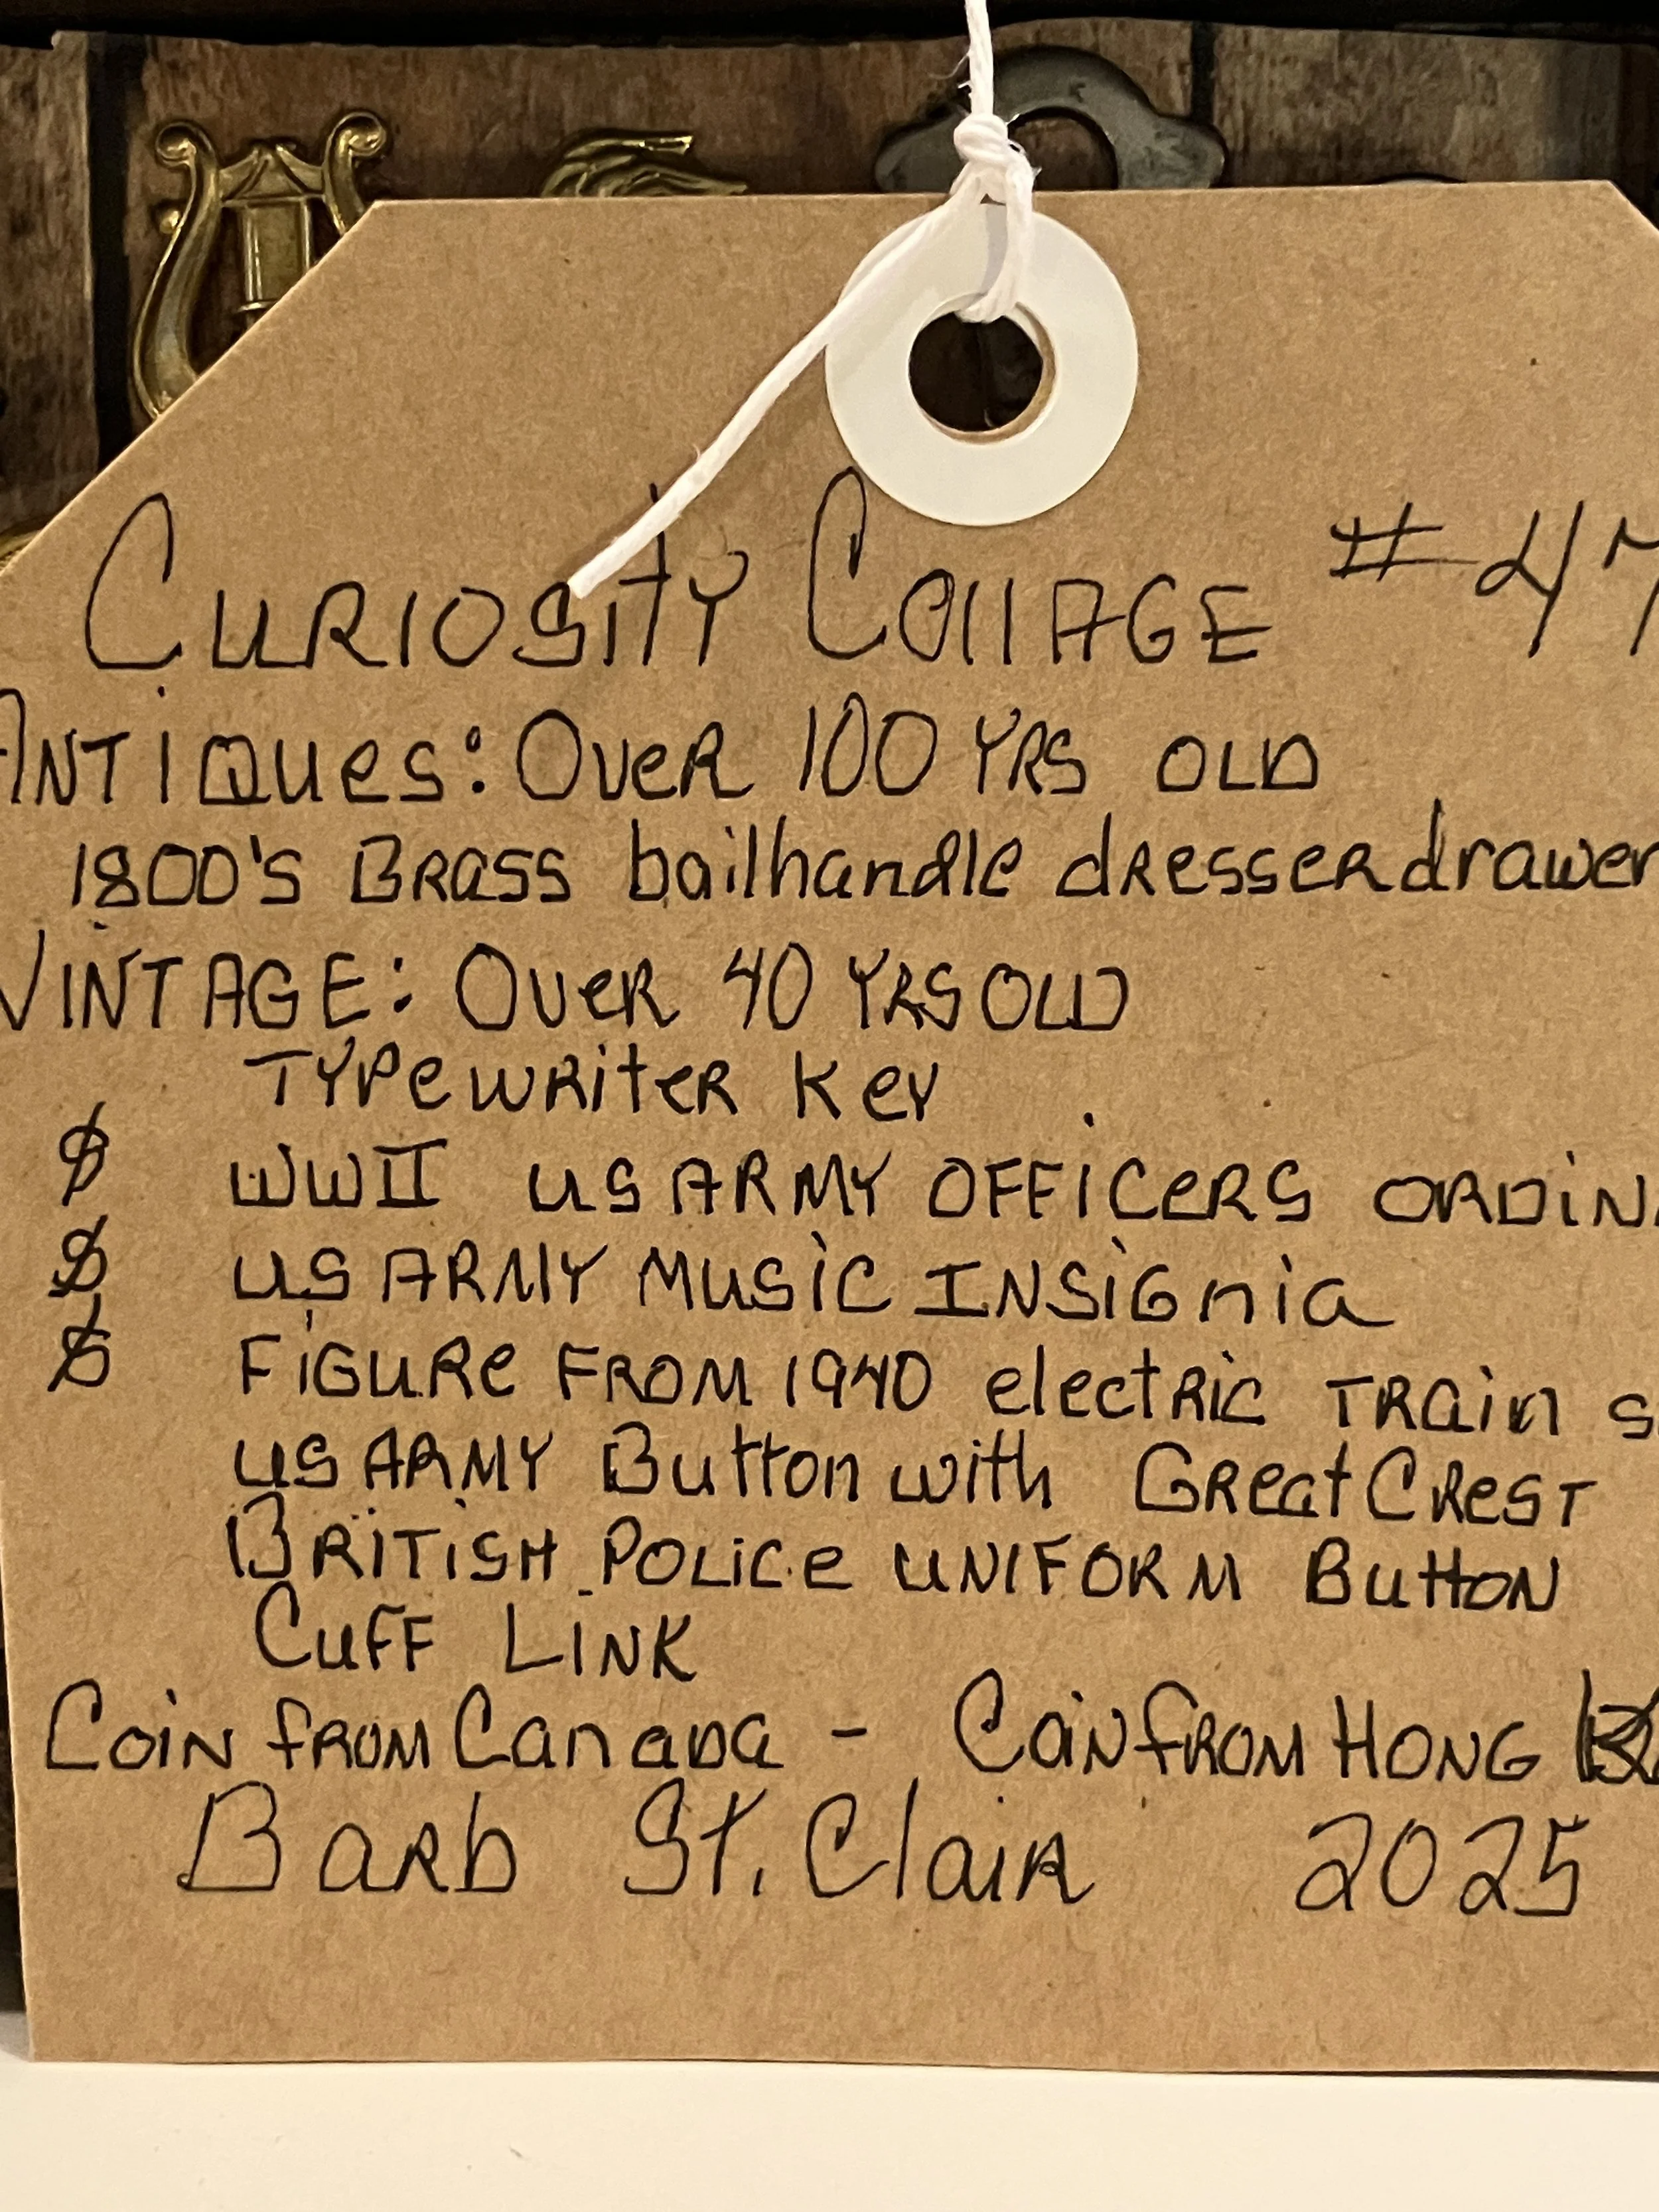 Curiosity Collage #47
Antiques: Over 100 YRS OLD
1800's Brass bailhandle dresser drawer
VINTAGE: Over 40 YRS OLD
Typewriter Key
$ WWII US ARMY OFFICERS ORDIN
$ US ARMY MUSIC INSIGnia
$ FIGURE FROM 1940 electric TRain s
US ARMY Button with Great Crest
BRITISH POLICE UNIFORM Button
Cuff LINK
Coin from Canada - Coin from HONG
Barb St. Clair 2025